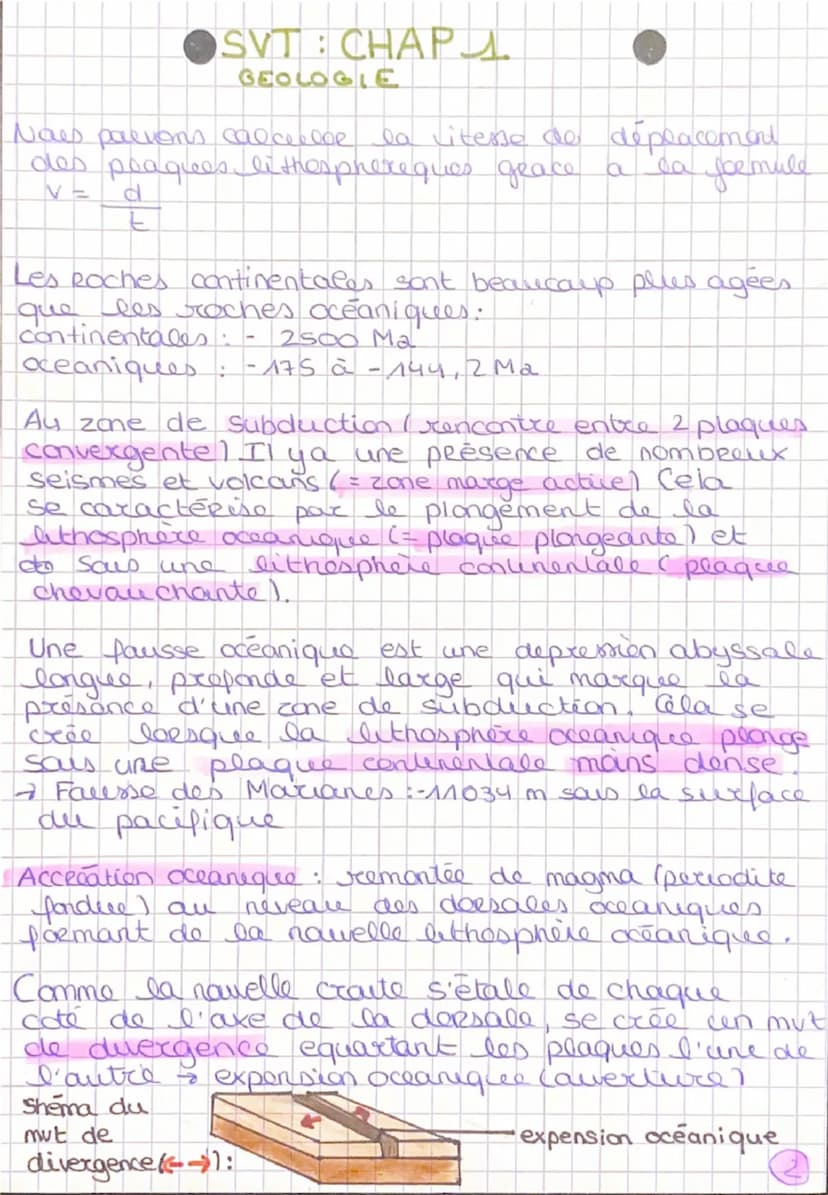 SVT : CHAP 1
GEOLOGIE
Nous pouvons calculer la vitesse de déplacement
des plaques lithosphereques grace a la formule
V = d
t
Les Roches continentales sont beaucoup plus agées
que les roches océaniques :
continentales : - 2500 Ma
oceaniques : -175 à -144,2 Ma
Au zone de subduction (rencontre entre 2 plaques
convergente) Il ya une présence de nombreux
seismes et volcans (= zone marge active) Cela
se caractérise par le plongement de la
lithosphère oceanique (= plaque plongeante) et
sous une lithosphère continentale (plaque
chevauchante).
Une fausse océanique est une depression abyssale
longue, profonde et large qui marque la
présance d'une zone de subduction. Cela se
crée lorsque la lithosphère oceanique plonge
sous une plaque continentale moins dense.
→ Fausse des Marianes :-11034 m sous la surface
du pacifique
Accrétion oceanique : remontée de magma (periodite
fondue) au niveau des dorsales oceaniques
formant de la nouvelle lithosphère océanique.
Comme la nouvelle croute s'étale de chaque
coté de l'axe de la dorsale, se crée un mvt
de divergence equartant les plaques l'une de
l'autre → expension oceanique (ouverture)
Shéma du
mvt de
divergence (← →) :
expension océanique
2